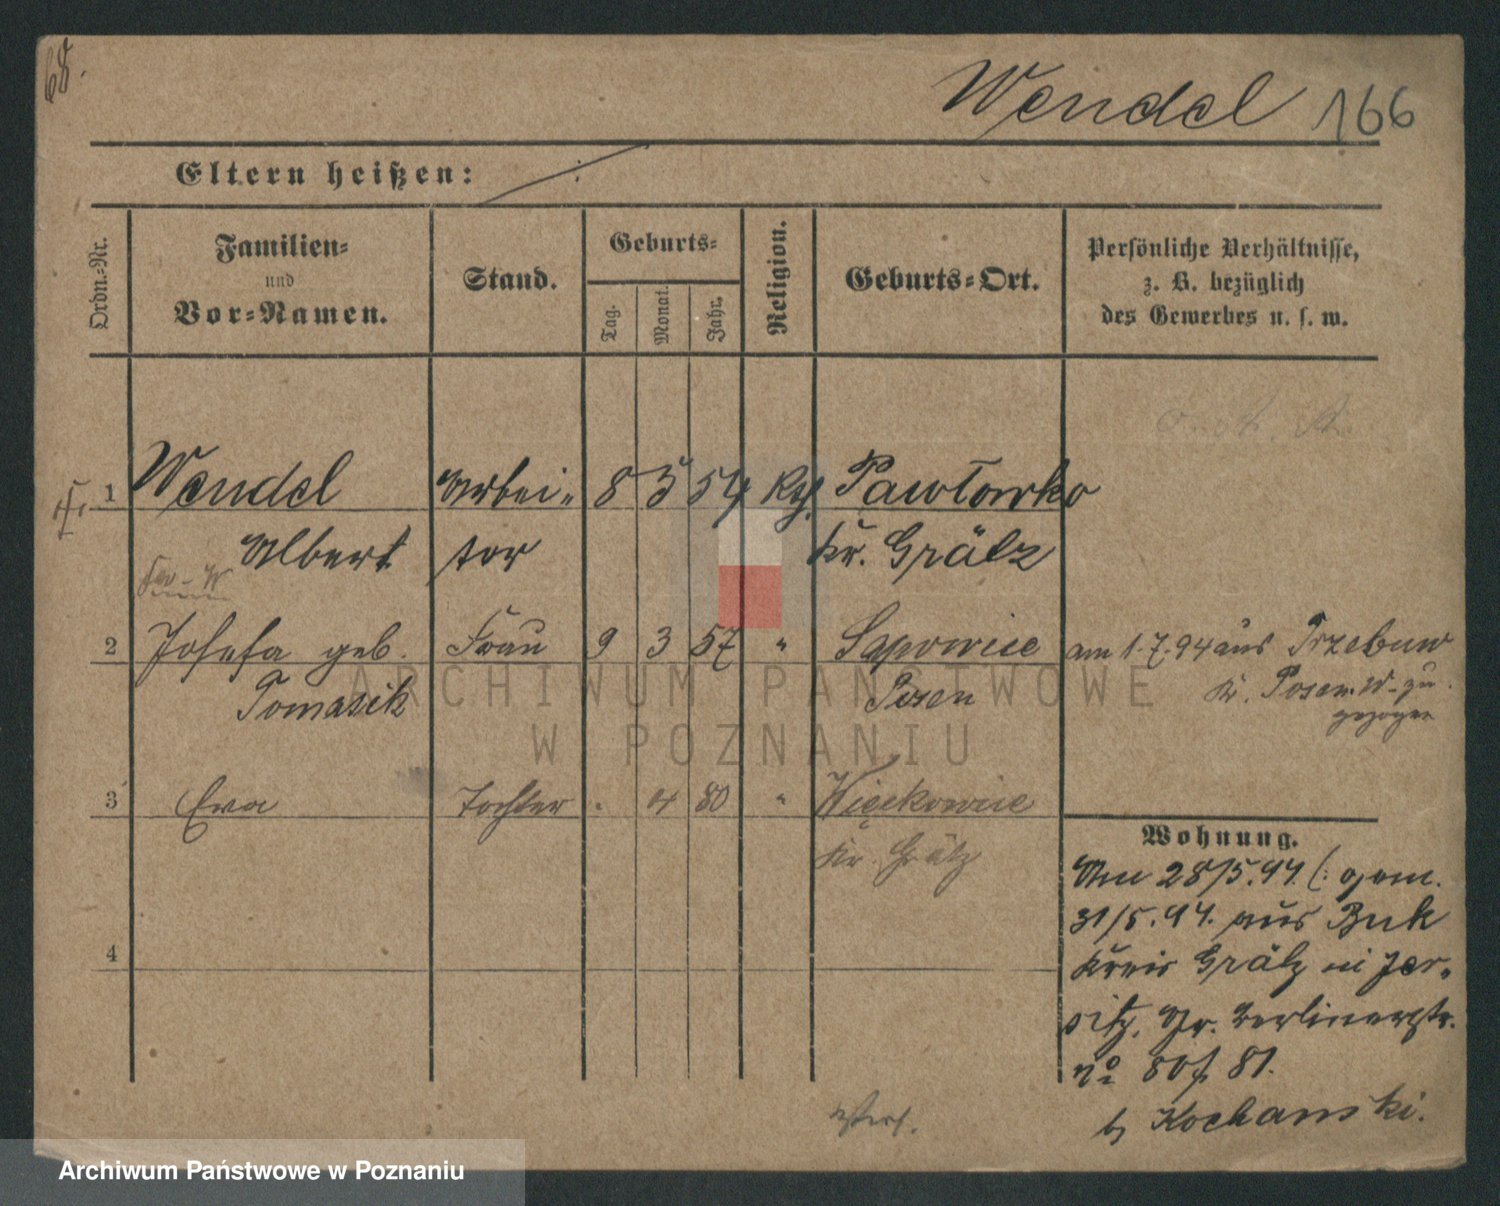 68.
Wendel 166
Eltern heißen:
Ordn.-Nr.
Familien-
und
Vor-Namen.
Stand.
Geburts-
Tag.
Monat.
Jahr.
Religion.
Geburts-Ort.
Persönliche Verhältnisse,
z. B. bezüglich
des Gewerbes u. s. w.
1 Wendel Arbei- 8 3 54 Kth. Pawłowko
Albert ter Kr. Grätz
2 Josefa geb. Frau 9 3 57 " Sapowice am 1.7.94 aus Trzebaw
Tomasik Posen Kr. Posen W. zu
gezogen
ARCHIWUM PAŃSTWOWE
W POZNANIU
3 Eva Tochter . 4 80 " Więckowice
Kr. Grätz
4
Wohnung.
Am 28/5.94. (: gem.
31/5.94. aus Buk
Kreis Grätz in Jer-
sitz, Gr. Berlinerstr.
No 80/81.
b. Kochanski.
Archiwum Państwowe w Poznaniu